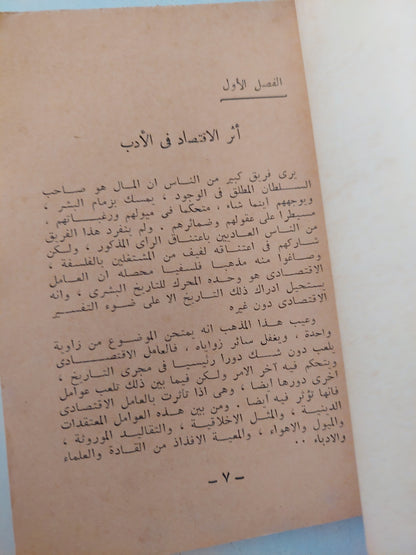 الفصل الأول
أثر الاقتصاد فى الأدب
يرى فريق كبير من الناس ان المال هو صاحب
السلطان المطلق فى الوجود ، يمسك بزمام البشر ،
ويوجههم أينما شاء ، متحكما فى ميولهم ورغباتهم ،
مسيطرا على عقولهم وضمائرهم . ولم ينفرد هذا الفريق
من الناس العاديين باعتناق الراى المذكور ، ولكن
شاركهم فى اعتناقه لفيف من المشتغلين بالفلسفة ،
وصاغوا منه مذهبا فلسفيا محصله ان العامل
الاقتصادى هو وحده المحرك للتاريخ البشرى ، وانه
يستحيل ادراك ذلك التاريخ الا على ضوء التفسير
الاقتصادى دون غيره
وعيب هذا المذهب انه يمتحن الموضوع من زاوية
واحدة ، ويغفل سائر زواياه . فالعامل الاقتصادى
يلعب دون شك دورا رئيسيا فى مجرى التاريخ ،
ويتحكم فيه آخر الامر ولكن فيما بين ذلك تلعب عوامل
أخرى دورها ايضا ، وهى اذا تأثرت بالعامل الاقتصادى
فانها تؤثر فيه ايضا . ومن بين هذه العوامل المعتقدات
الدينية ، والمثل الاخلاقية ، والتقاليد الموروثة ،
والميول والاهواء ، والمعية الافذاذ من القادة والعلماء
والادباء ..
– ٧ –